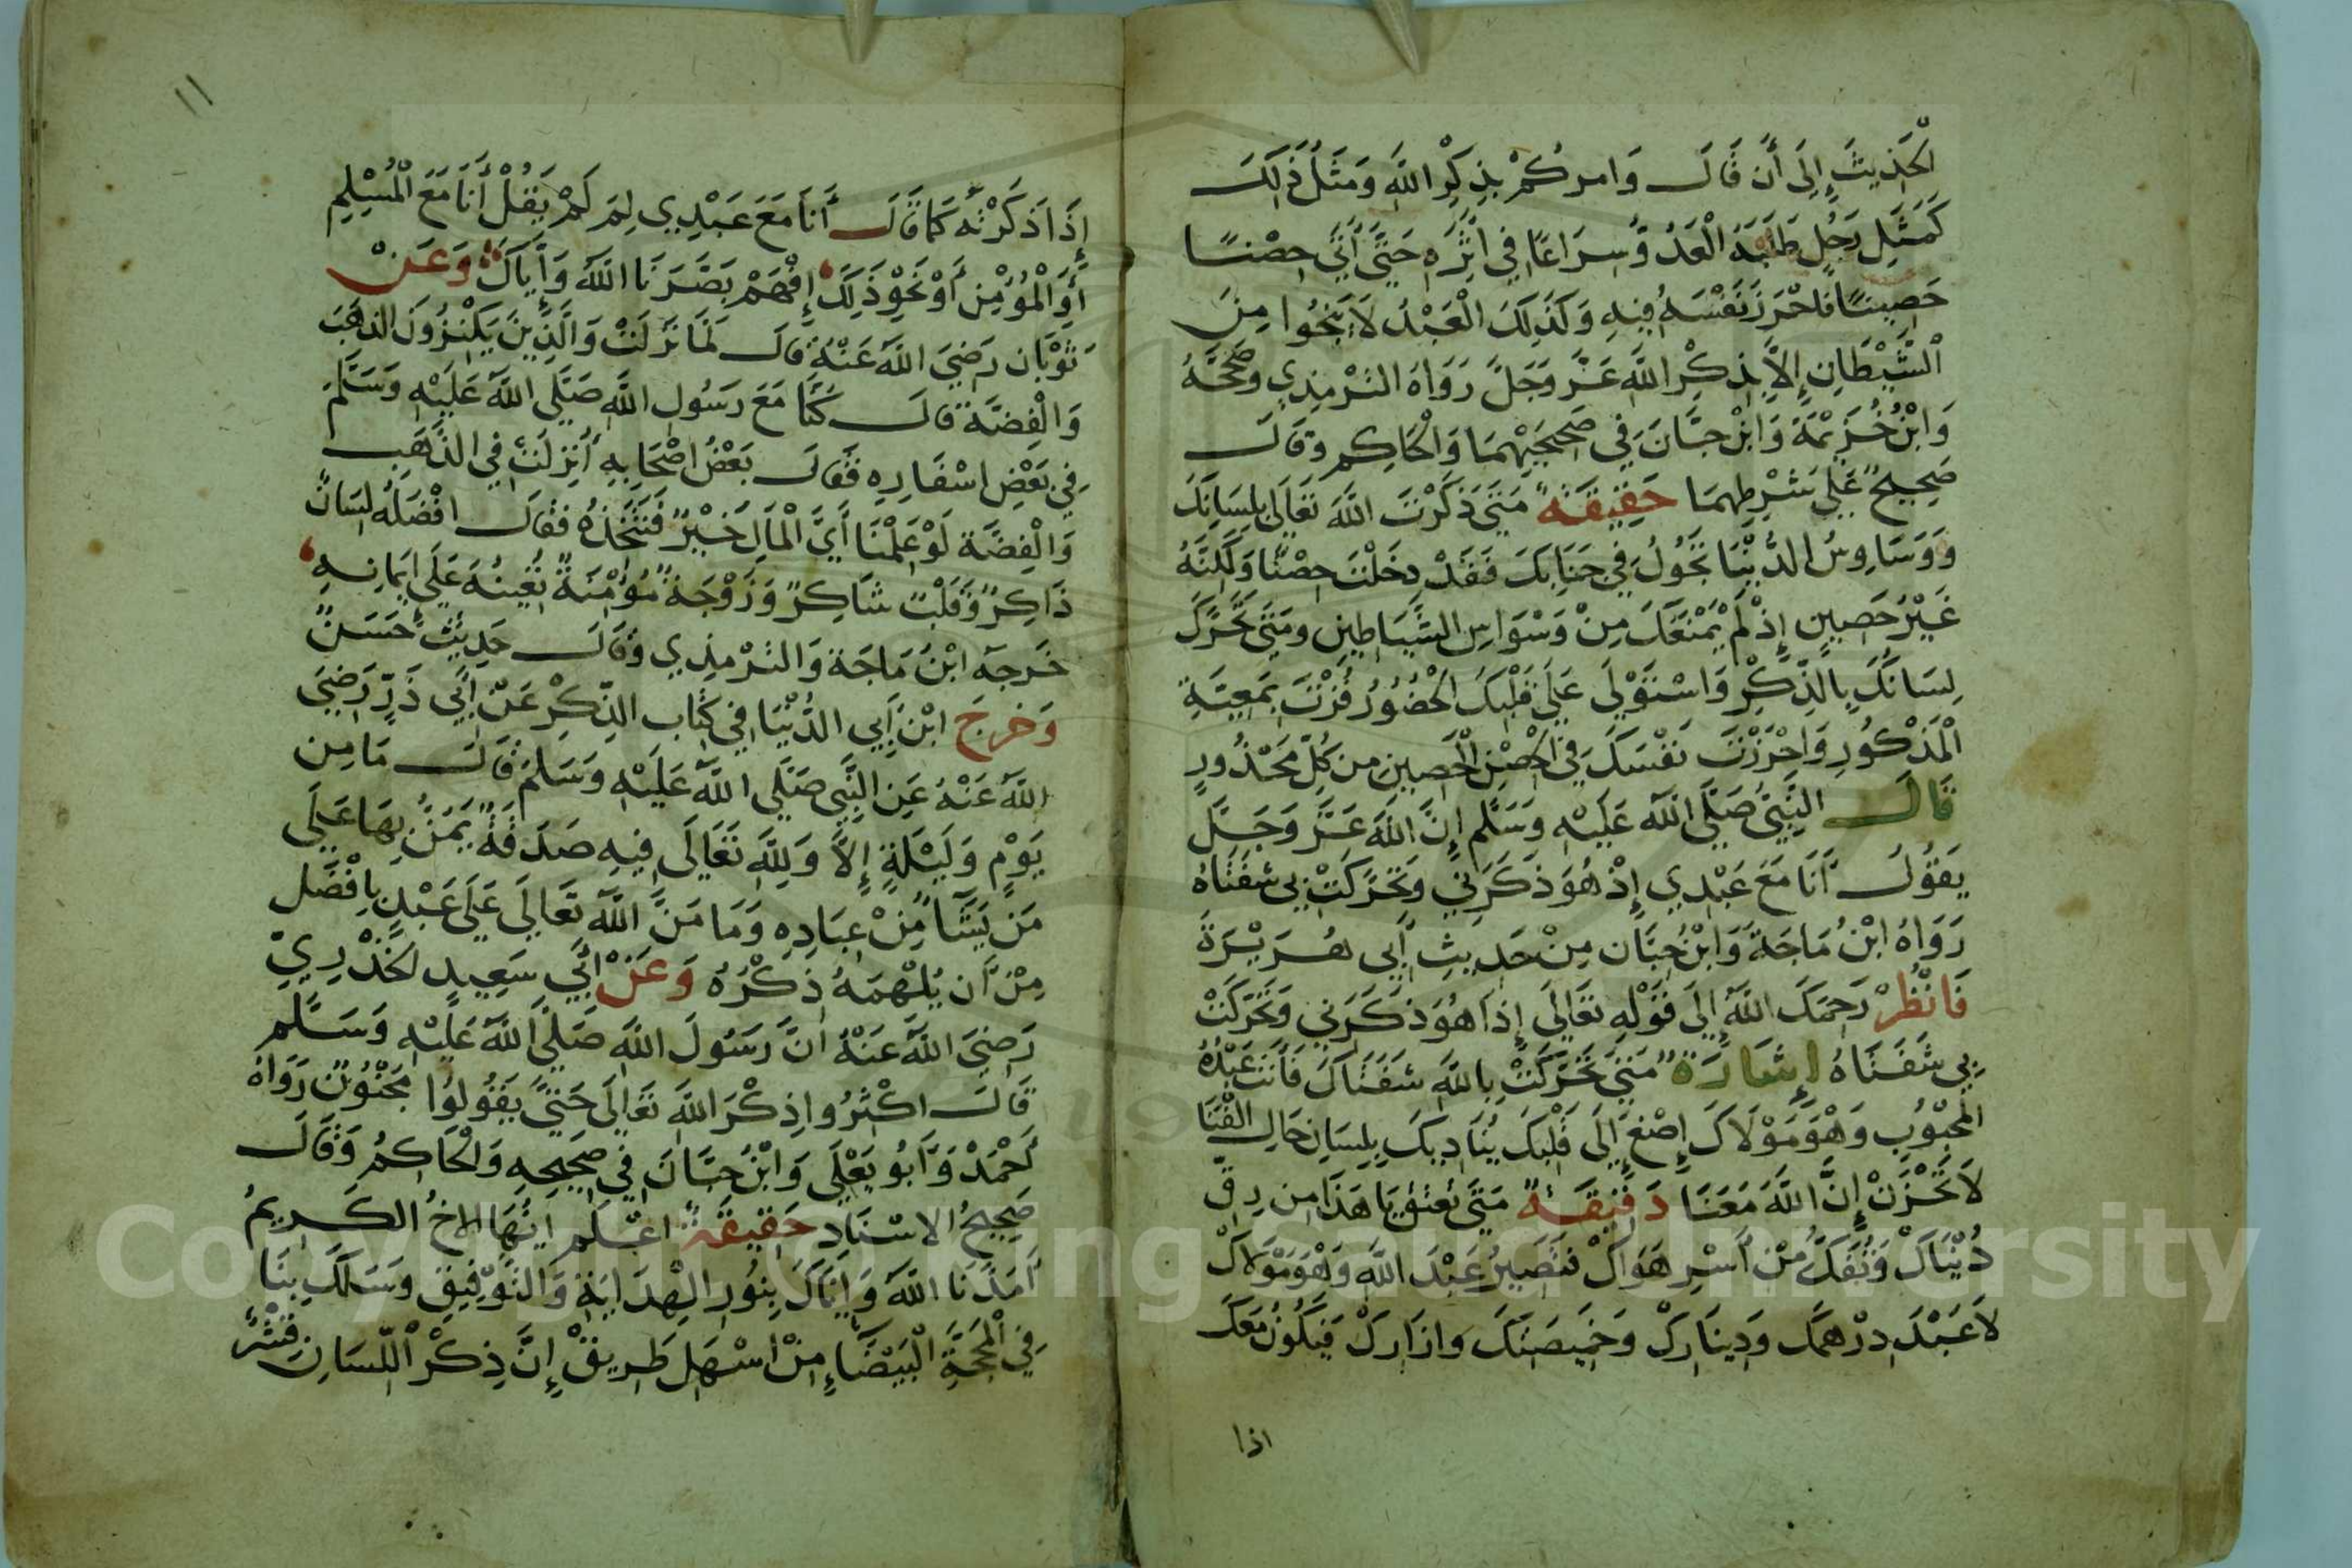 الْحَدِيثَ إِلَى أَن قَالَ وَامركُمْ بِذِكْرِ اللَّهِ وَمَثَلُ ذَلِكَ
كَمَثَلِ رَجُلٍ طَلَبَهُ الْعَدُوُّ سِرَاعًا فِي اثَرِهِ حَتَّى أَتَى حِصْنًا
حَصِينًا فَاحْرَزَ نَفْسَهُ فِيهِ وَكَذَلِكَ الْعَبْدُ لَا يَنْجُوا مِنَ
الْشَّيْطَانِ إِلَّا بِذِكْرِ اللَّهِ عَزَّ وَجَلَّ رَوَاهُ التِرْمِذِي وصَحَّحَهُ
وَابْنُ خُزَيْمَةَ وَابْنُ حِبَّانَ فِي صَحِيحَيْهِمَا وَالْحَاكِم وقَالَ
صَحِيحٌ عَلَى شَرْطِهِمَا حَقِيقَةٌ مَتَى ذَكَرْتَ اللَّهَ تَعَالَى بِلِسَانِكَ
وَوَسَاوِسُ الدُّنْيَا تَجُولُ فِي جَنَابِكَ فَقَدْ دخَلْتَ حِصْنًا وَلَكِنَّهُ
غَيْرُ حَصِينٍ إِذْ لَمْ يَمْنَعَكَ مِنْ وَسْوَاسِ الشَّيَاطِينِ ومَتَى تَحَرَّكَ
لِسَانَكَ بِالذِّكْرِ وَاسْتَوْلَى عَلَى قَلْبِكَ الْحُضُورُ فُزْتَ بِمَعِيَّةِ
الْمَذْكُورِ وَاحْرَزْتَ نَفْسَكَ فِي الْحِصْنِ الْحَصِينِ مِن كُلِّ مَحْذُورٍ
قَالَ النَّبِيُّ صَلَّى اللَّهُ عَلَيْهِ وَسَلَّم إِنَّ اللَّهَ عَزَّ وَجَلَّ
يَقُولُ أَنَا مَعَ عَبْدِي إِذْ هُوَ ذَكَرَنِي وَتَحَرَّكَتْ بِي شَفَتَاهُ
رَوَاهُ ابْنُ مَاجَةَ وَابْنُ حِبَّان مِنْ حَدِيثِ أَبِي هُرَيْرَةَ
فَانْظُرْ رَحِمَكَ اللَّهُ إِلَى قَوْلِهِ تَعَالَى إِذَا هُوَ ذَكَرَنِي وَتَحَرَكَتْ
بِي شَفَتَاهُ إِشَارَةٌ مَتَى تَحَرَّكَتْ بِاللَّهِ شَفَتَاكَ فَأَنتَ عَبْدُهُ
المَحْبُوب وَهُوَ مَوْلَاكَ إِصْغِ إِلَى قَلْبِكَ يُنَادِيكَ بِلِسَانِ حَالِ الفَنَا
لَا تَحْزَنْ إِنَّ اللَّهَ مَعَنَا دَقِيقَةٌ مَتَى تُعْتَقْ يَا هَذَا مِن رِقِّ
دُنْيَاكَ وَتُفَكَّ مِنْ أَسْرِ هَوَاكْ فتَصِيرُ عَبْدَ اللَّهِ وَهُوَ مَوْلَاكْ
لَا عَبْدَ دِرْهَمَكَ وَدِينَارِكْ وَخَمِيصَتَكَ وازَارِكْ فَيَكُونُ مَعَكَ
اذا
١١
إِذَا ذَكَرْتَهُ كَمَا قَالَ أَنَا مَعَ عَبْدِي لِمَ لَمْ يَقُلْ أَنَا مَعَ الْمُسْلِمِ
أَوِ الْمُؤْمِنِ أَوْ نَحْوِ ذَلِكَ إِفْهَمْ بَصَّرَنَا اللَّهُ وَإِيَّاكَ وَعَنْ
ثَوْبَان رَضِيَ اللَّهُ عَنْهُ قَالَ لَمَّا نَزَلَتْ وَالَّذِينَ يَكْنِزُونَ الذَهَبَ
وَالْفِضَّةَ قَالَ كُنَّا مَعَ رَسُولِ اللَّهِ صَلَّى اللَّهُ عَلَيْهِ وَسَلَّمَ
فِي بَعْضِ اسْفَارِهِ فَقَالَ بَعْضُ اصْحَابِهِ أُنْزِلَتْ فِي الذَّهَبِ
وَالْفِضَّةِ لَوْ عَلِمْنَا أَيَّ الْمَالِ خَيْرٌ فَنَتَّخِذُهُ فَقَالَ افْضَلُهُ لِسَانٌ
ذَاكِرٌ وَقَلْبٌ شَاكِرٌ وَزَوْجَةٌ مُؤْمِنَةٌ تُعِينُهُ عَلَى إِيمَانِهِ
خَرجَه ابْنُ مَاجَة وَالتِرْمِذِي وقَالَ حَدِيثٌ حَسَنٌ
وَخرجَ ابْنُ أَبِي الدُّنْيَا فِي كِتَابِ الذِّكْرِ عَنْ أَبِي ذَرٍّ رَضِيَ
اللَّهُ عَنْهُ عَنِ النَّبِي صَلَّى اللَّهُ عَلَيْهِ وَسَلَمَ قَالَ مَا مِن
يَوْمٍ وَلَيْلَةٍ إِلَّا وَلِلَّهِ تَعَالَى فِيهِ صَدَقَةٌ يَمُنُّ بِهَا عَلَى
مَن يَشَّآءُ مِنْ عِبَادِهِ وَمَا مَنَّ اللَّهُ تَعَالَى عَلَى عَبْدٍ بِافْضَل
مِنْ أَن يُلْهِمَهُ ذِكْرُهُ وَعَنْ أَبِي سَعِيدٍ الخُدْرِيِّ
رَضِيَ اللَّهُ عَنْهُ أَنَّ رَسُولَ اللَّهِ صَلَّى اللَّهُ عَلَيْهِ وَسَلَّم
قَالَ اكْثِرُوا ذِكْرَ اللَّهَ تَعَالَى حَتَّى يَقُولُوا مَجْنُونٌ رَوَاهُ
أَحْمَدْ وَأَبُو يَعْلَى وَابْنُ حِبَّانَ فِي صَحِيحِهِ وَالْحَاكِمُ وَقَالَ
صَحِيحُ الاسْنَادِ حَقِيقَةٌ اعْلَم ايُّهَا الاخُ الكَرِيمُ
أَمَدَّنَا اللَّهُ وَإِيَّاكَ بِنُورِ الْهِدَايَةِ وَالتَّوْفِيقِ وسَلَكَ بِنَا
فِي الْمَحَجَّةِ الْبَيْضَاءِ مِنْ اسْهَلِ طَرِيقْ إِنَّ ذِكْرَ الْلِّسَانِ قِشْرٌ
Copyright © King Saud University